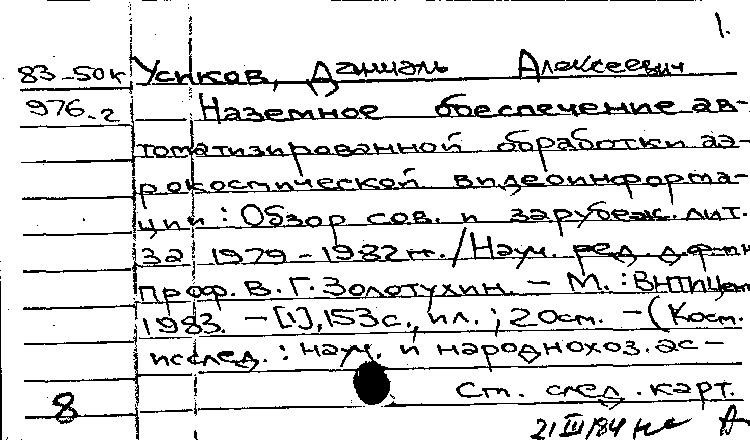 1.
83-50к Усиков, Даниэль Алексеевич
976-2 Наземное обеспечение ав-
томатизированной обработки аэ-
рокосмической видеоинформа-
ции : Обзор сов. и зарубеж. лит.
за 1979-1982 гг. / Науч. ред. д.ф-м.н.
проф. В. Г. Золотухин. - М. : ВНТИЦент
1983. - [1], 153 с., ил. ; 20 см. - (Косм.
исслед. : науч. и народнохоз. ас-
См. след. карт.
8
21 III/84